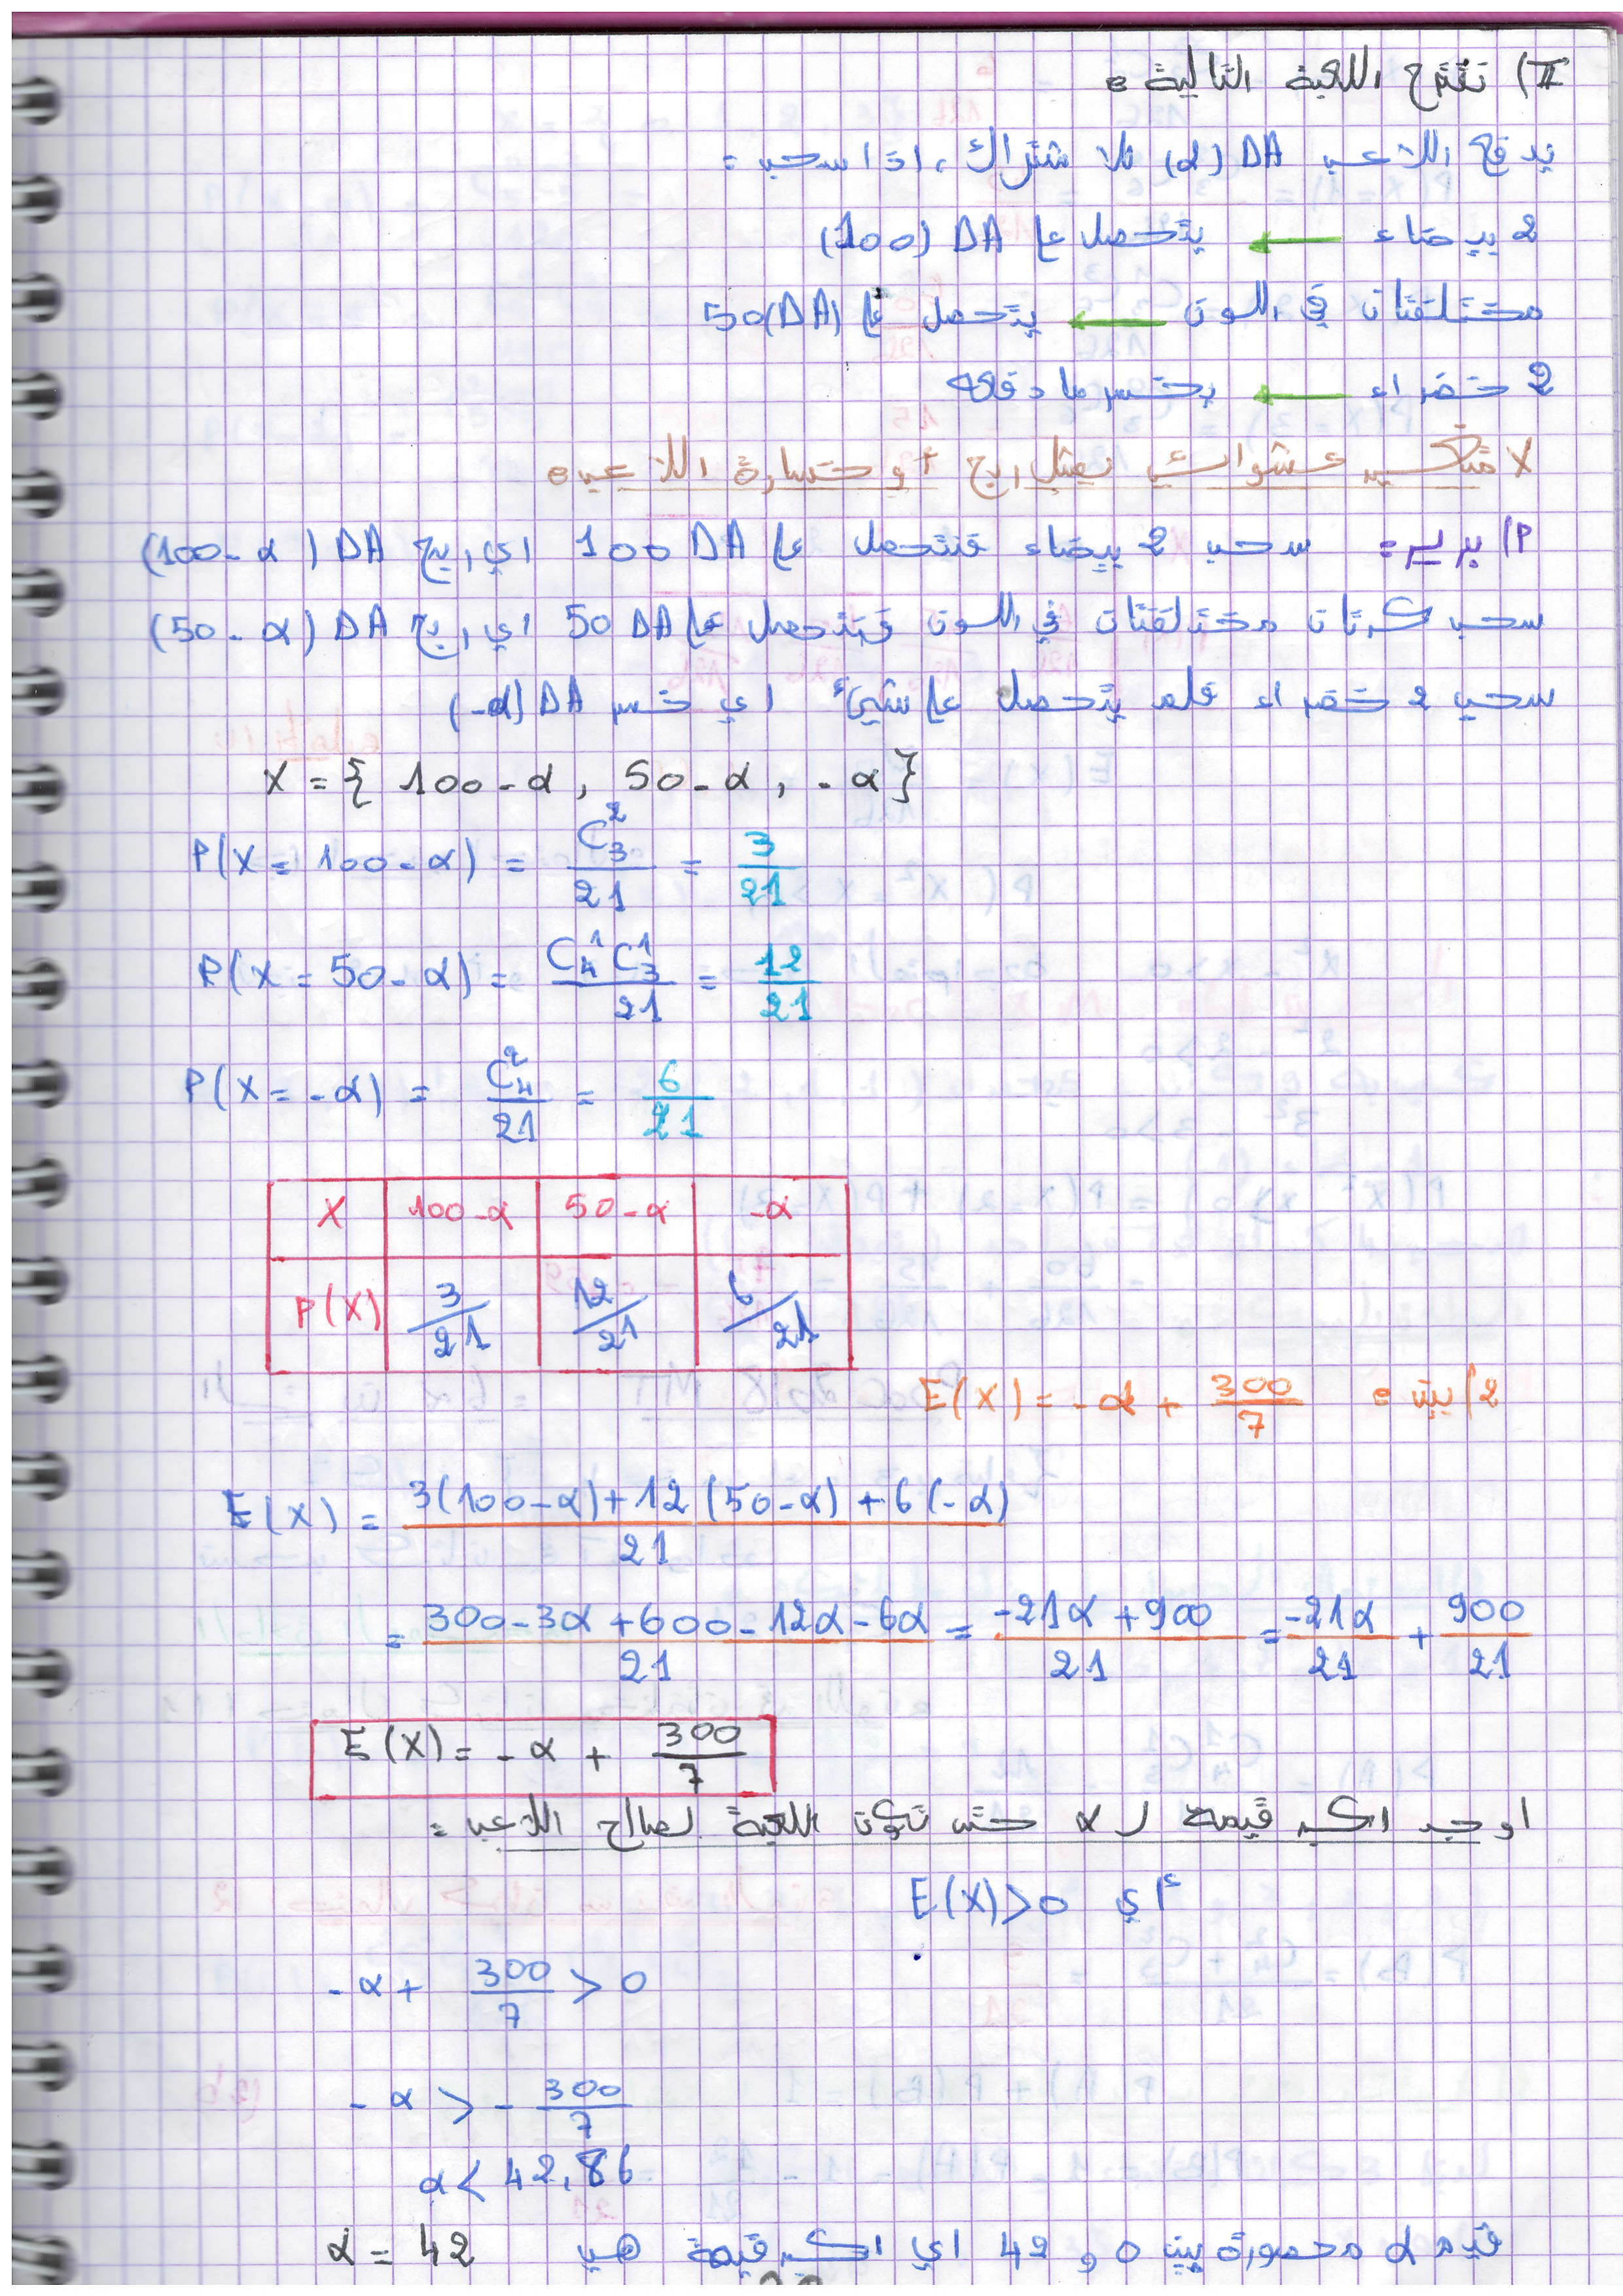 II) نقترح اللعبة التالية:
يدفع اللاعب DA (α) للاشتراك، اذا سحب:
2 بيضاء ← يتحصل على DA (100)
مختلفتان في اللون ← يتحصل على 50(DA)
2 خضراء ← يخسر ما دفعه
X متغير عشوائي يمثل ربح أو خسارة اللاعب:
1) برر: سحب 2 بيضاء فنتحصل على 100 DA اي ربح DA (100-α)
سحب كرتان مختلفتان في اللون فنتحصل على 50 DA اي ربح DA (50-α)
سحب 2 خضراء فلم يتحصل على شيئ اي خسر DA (-α)
X = { 100-α , 50-α , -α }
P(X = 100-α) = C_3^2 / 21 = 3/21
P(X = 50-α) = C_4^1 C_3^1 / 21 = 12/21
P(X = -α) = C_4^2 / 21 = 6/21
X 100-α 50-α -α
P(X) 3/21 12/21 6/21
2) بين: E(X) = -α + 300/7
E(X) = 3(100-α)+12(50-α)+6(-α) / 21
= 300-3α+600-12α-6α / 21 = -21α+900 / 21 = -21α/21 + 900/21
E(X) = -α + 300/7
اوجد اكبر قيمة ل α حتى تكون اللعبة لصالح اللاعب:
أي E(X)>0
-α + 300/7 > 0
-α > -300/7
α < 42,86
قيم α محصورة بين 0 و 42 اي اكبر قيمة هي α = 42